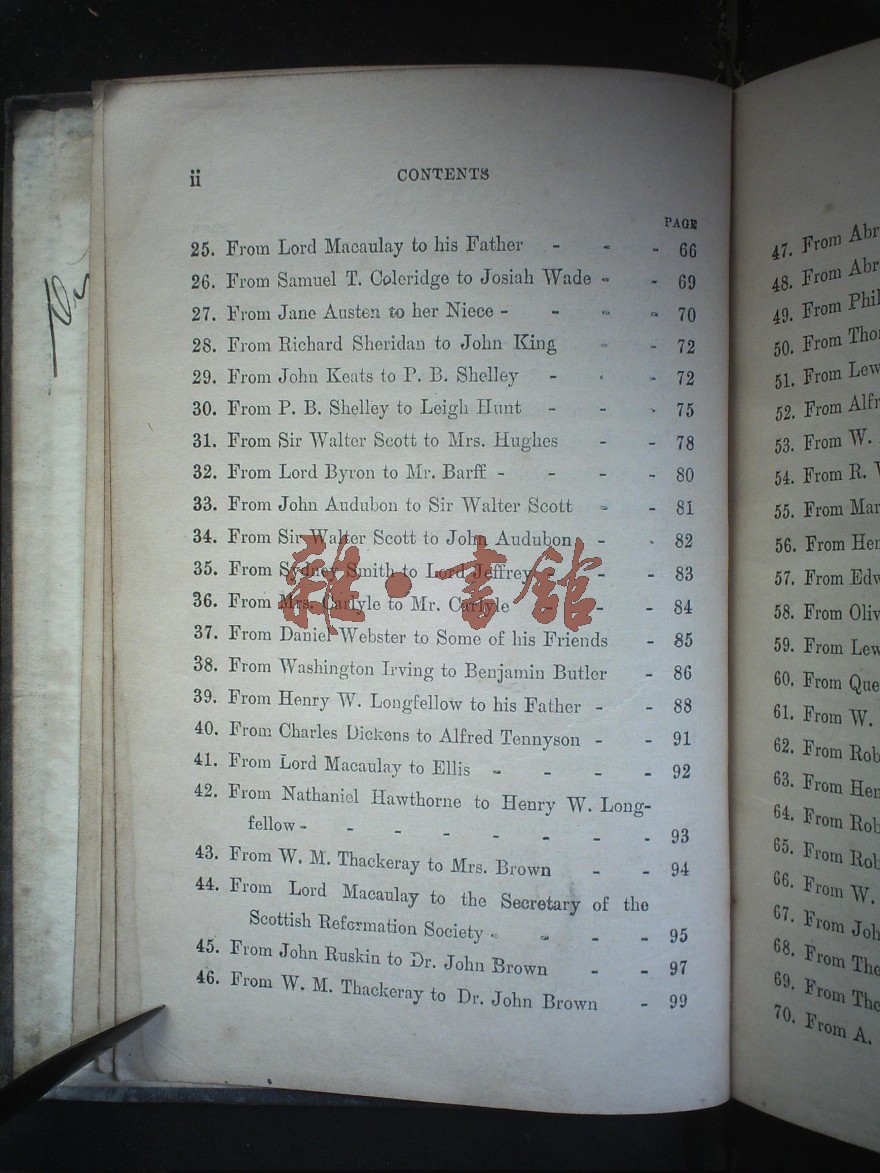 ii
CONTENTS
PAGE
25. From Lord Macaulay to his Father - - - 66
26. From Samuel T. Coleridge to Josiah Wade - - 69
27. From Jane Austen to her Niece - - - - 70
28. From Richard Sheridan to John King - - 72
29. From John Keats to P. B. Shelley - - - 72
30. From P. B. Shelley to Leigh Hunt - - - 75
31. From Sir Walter Scott to Mrs. Hughes - - 78
32. From Lord Byron to Mr. Barff - - - - 80
33. From John Audubon to Sir Walter Scott - - 81
34. From Sir Walter Scott to John Audubon - - 82
35. From Sydney Smith to Lord Jeffrey - - 83
36. From Mrs. Carlyle to Mr. Carlyle - - - 84
37. From Daniel Webster to Some of his Friends - 85
38. From Washington Irving to Benjamin Butler - 86
39. From Henry W. Longfellow to his Father - - 88
40. From Charles Dickens to Alfred Tennyson - - 91
41. From Lord Macaulay to Ellis - - - - 92
42. From Nathaniel Hawthorne to Henry W. Long-
fellow - - - - - - - - 93
43. From W. M. Thackeray to Mrs. Brown - - 94
44. From Lord Macaulay to the Secretary of the
Scottish Reformation Society - - - - 95
45. From John Ruskin to Dr. John Brown - - 97
46. From W. M. Thackeray to Dr. John Brown - 99
雜·書館
47. From Abr
48. From Abr
49. From Phil
50. From Tho
51. From Lew
52. From Alfr
53. From W.
54. From R.
55. From Mar
56. From Her
57. From Edw
58. From Oliv
59. From Lew
60. From Que
61. From W.
62. From Rob
63. From Her
64. From Rob
65. From Rob
66. From W.
67. From Joh
68. From The
69. From The
70. From A.